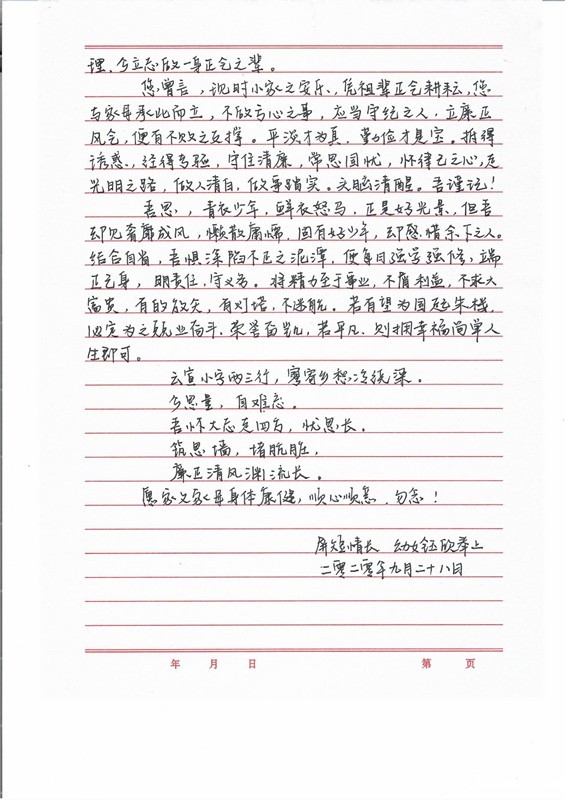 理，今立志做一身正气之辈。
您曾言，现时小家之安乐，凭祖辈正气耕耘，您
与家母承此而立，不做亏心之事，应当守纪之人，立廉正
风气，便有不败之支撑。平淡才为真，勤俭才是宝。拒得
诱惑，经得考验，守住清廉，常思国忧，怀律己之心，走
光明之路，做人清白，做事踏实。头脑清醒。吾谨记！
吾思，青衣少年，鲜衣怒马，正是好光景，但吾
却见奢靡成风，懒散庸惰，固有好少年，却感惜余下之人。
结合自省，吾惧深陷不正之泥潭，便每日强学强修，端
正己身，明责任，守义务。将精力至于事业，不菅利益，不求大
富贵，有的放矢，有灯塔，不迷航。若有望为国砥朱栈
必定为之兢业奋斗，荣誉奋凯，若平凡，则拥幸福简单人
生即可。
云宣小字两三行，寥寄乡愁冷纸梁。
今思量，自难忘。
吾怀大志走四方，忧思长。
筑思墙，堵肮脏，
廉正清风渊流长。
愿家父家母身体康健，顺心顺意，勿念！
纸短情长 幼女钰欣奉上
二零二零年九月二十八日
年 月 日 第 页